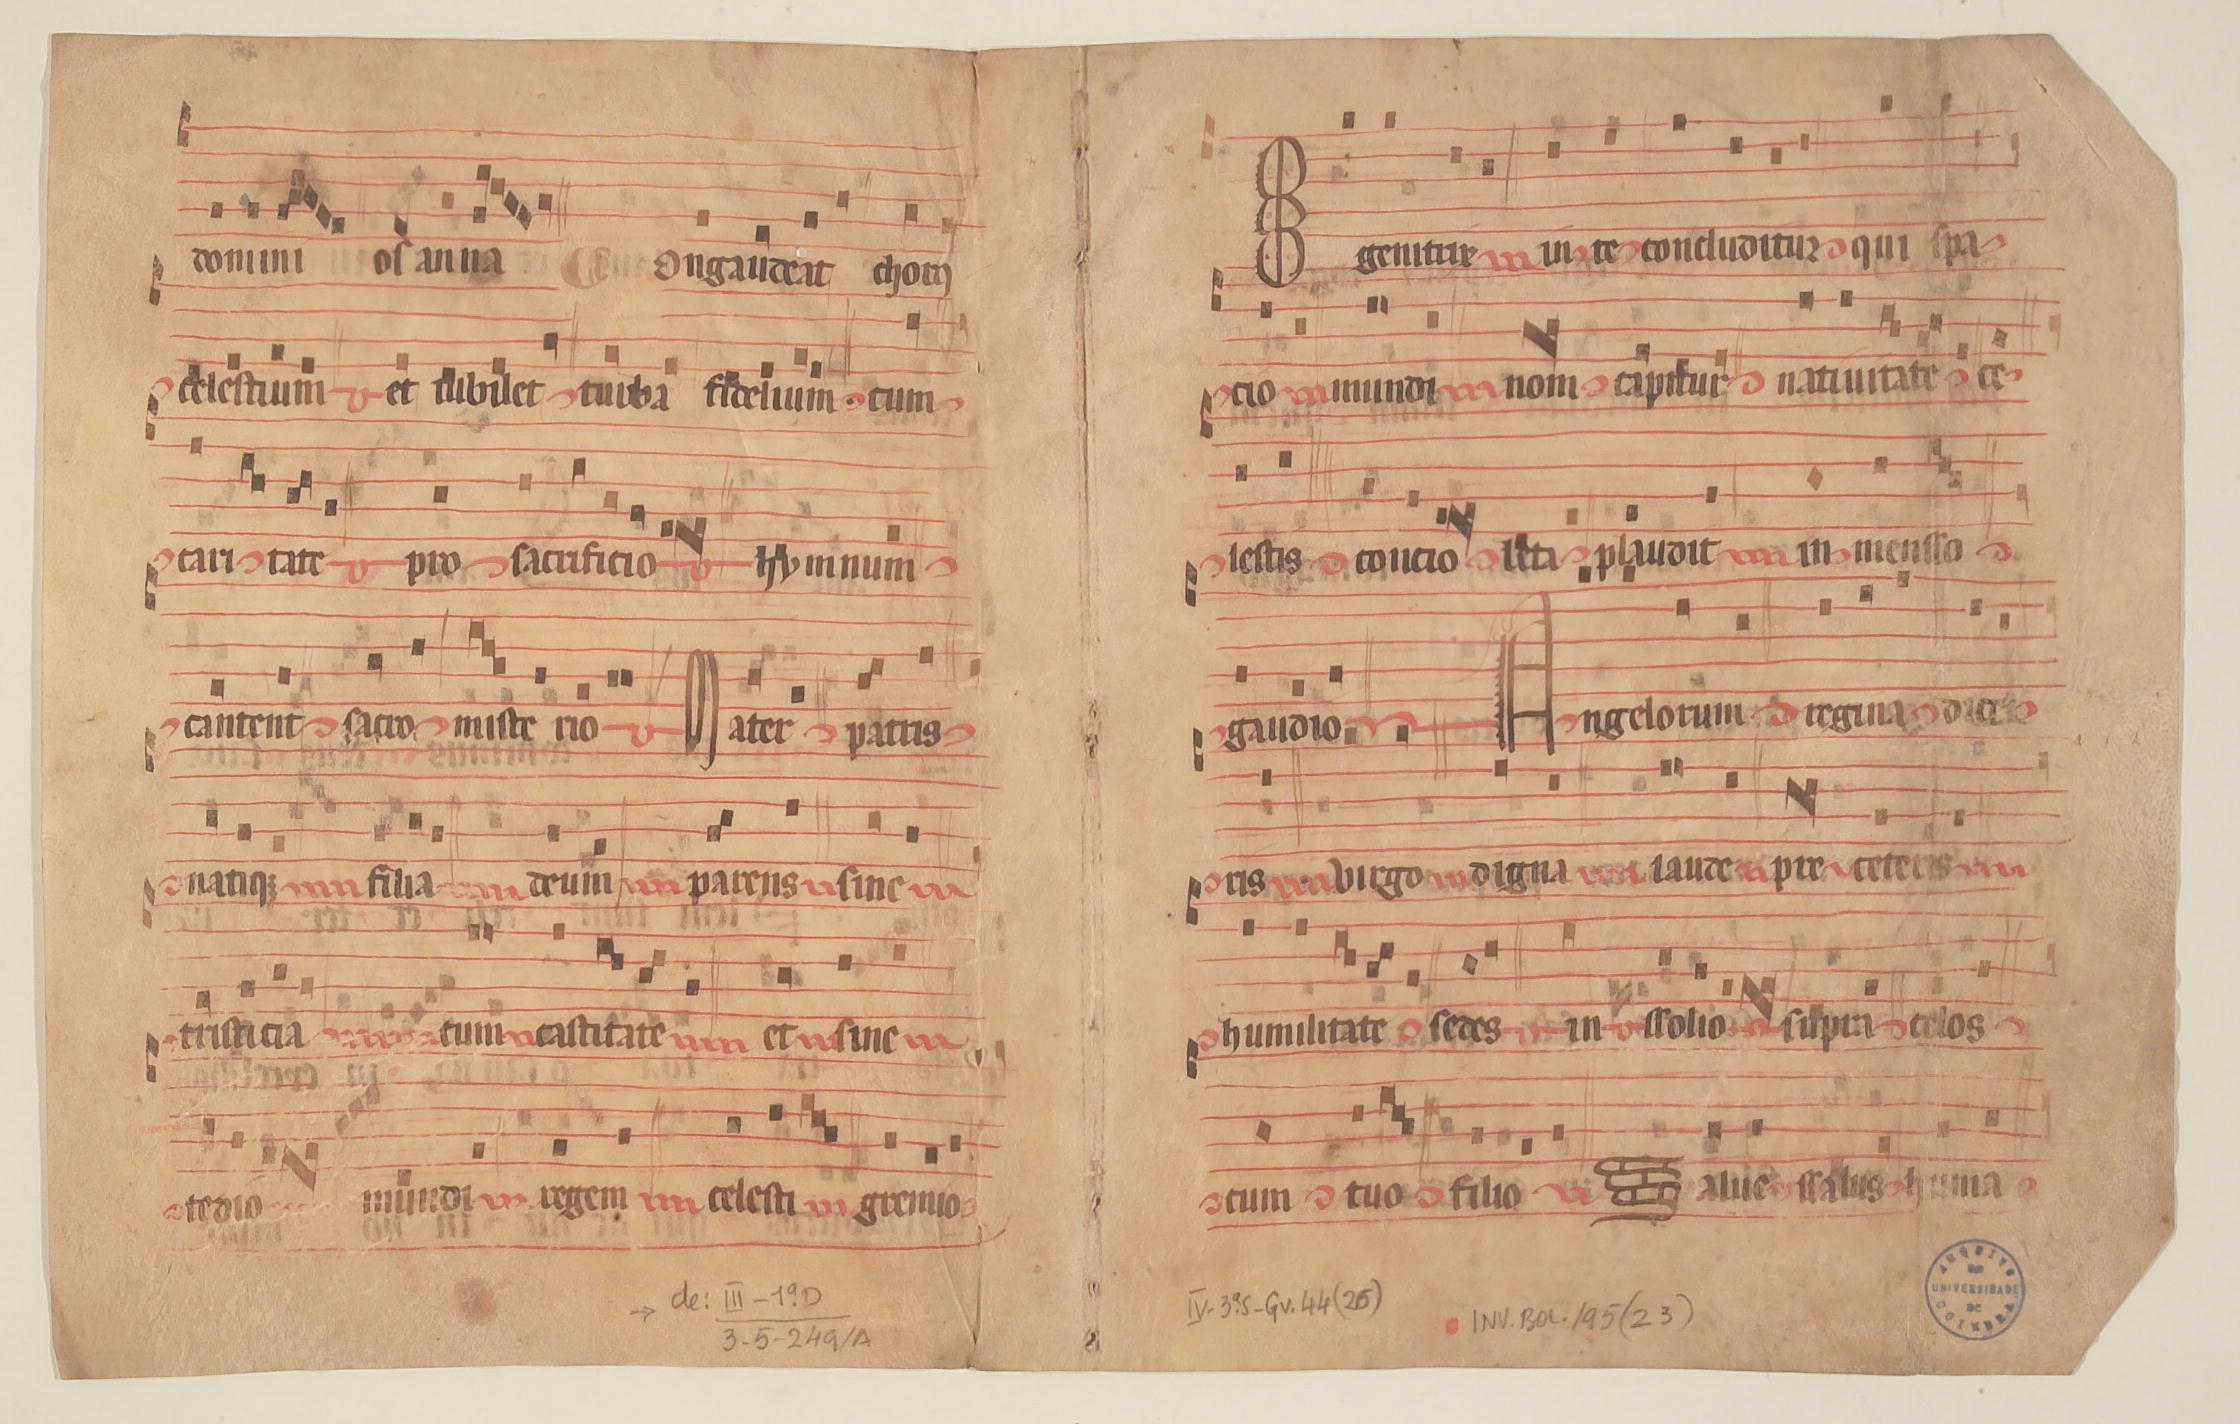 domini osanna Congaudeat chorus
celestium et iubilet turba fidelium cum
caritate pro sacrificio Hymnum
cantent sacro misterio Mater patris
natiq; filia deum parens sine
tristicia cum castitate et sine
tedio mundi regem celesti gremio
genitur in te concluditur qui spa
cio mundi non capitur natiuitate ce
lestis concio leta plaudit in mensso
gaudio Angelorum regina dice
ris virgo digna laude pre ceteris
humilitate sedes in ssolio supra celos
cum tuo filio Salue ssalus huma
de: III-1ªD
3-5-249/A
IV-3ªS-Gv.44(26)
INV. BOL. 195(23)
ARQUIVO DA UNIVERSIDADE DE COIMBRA